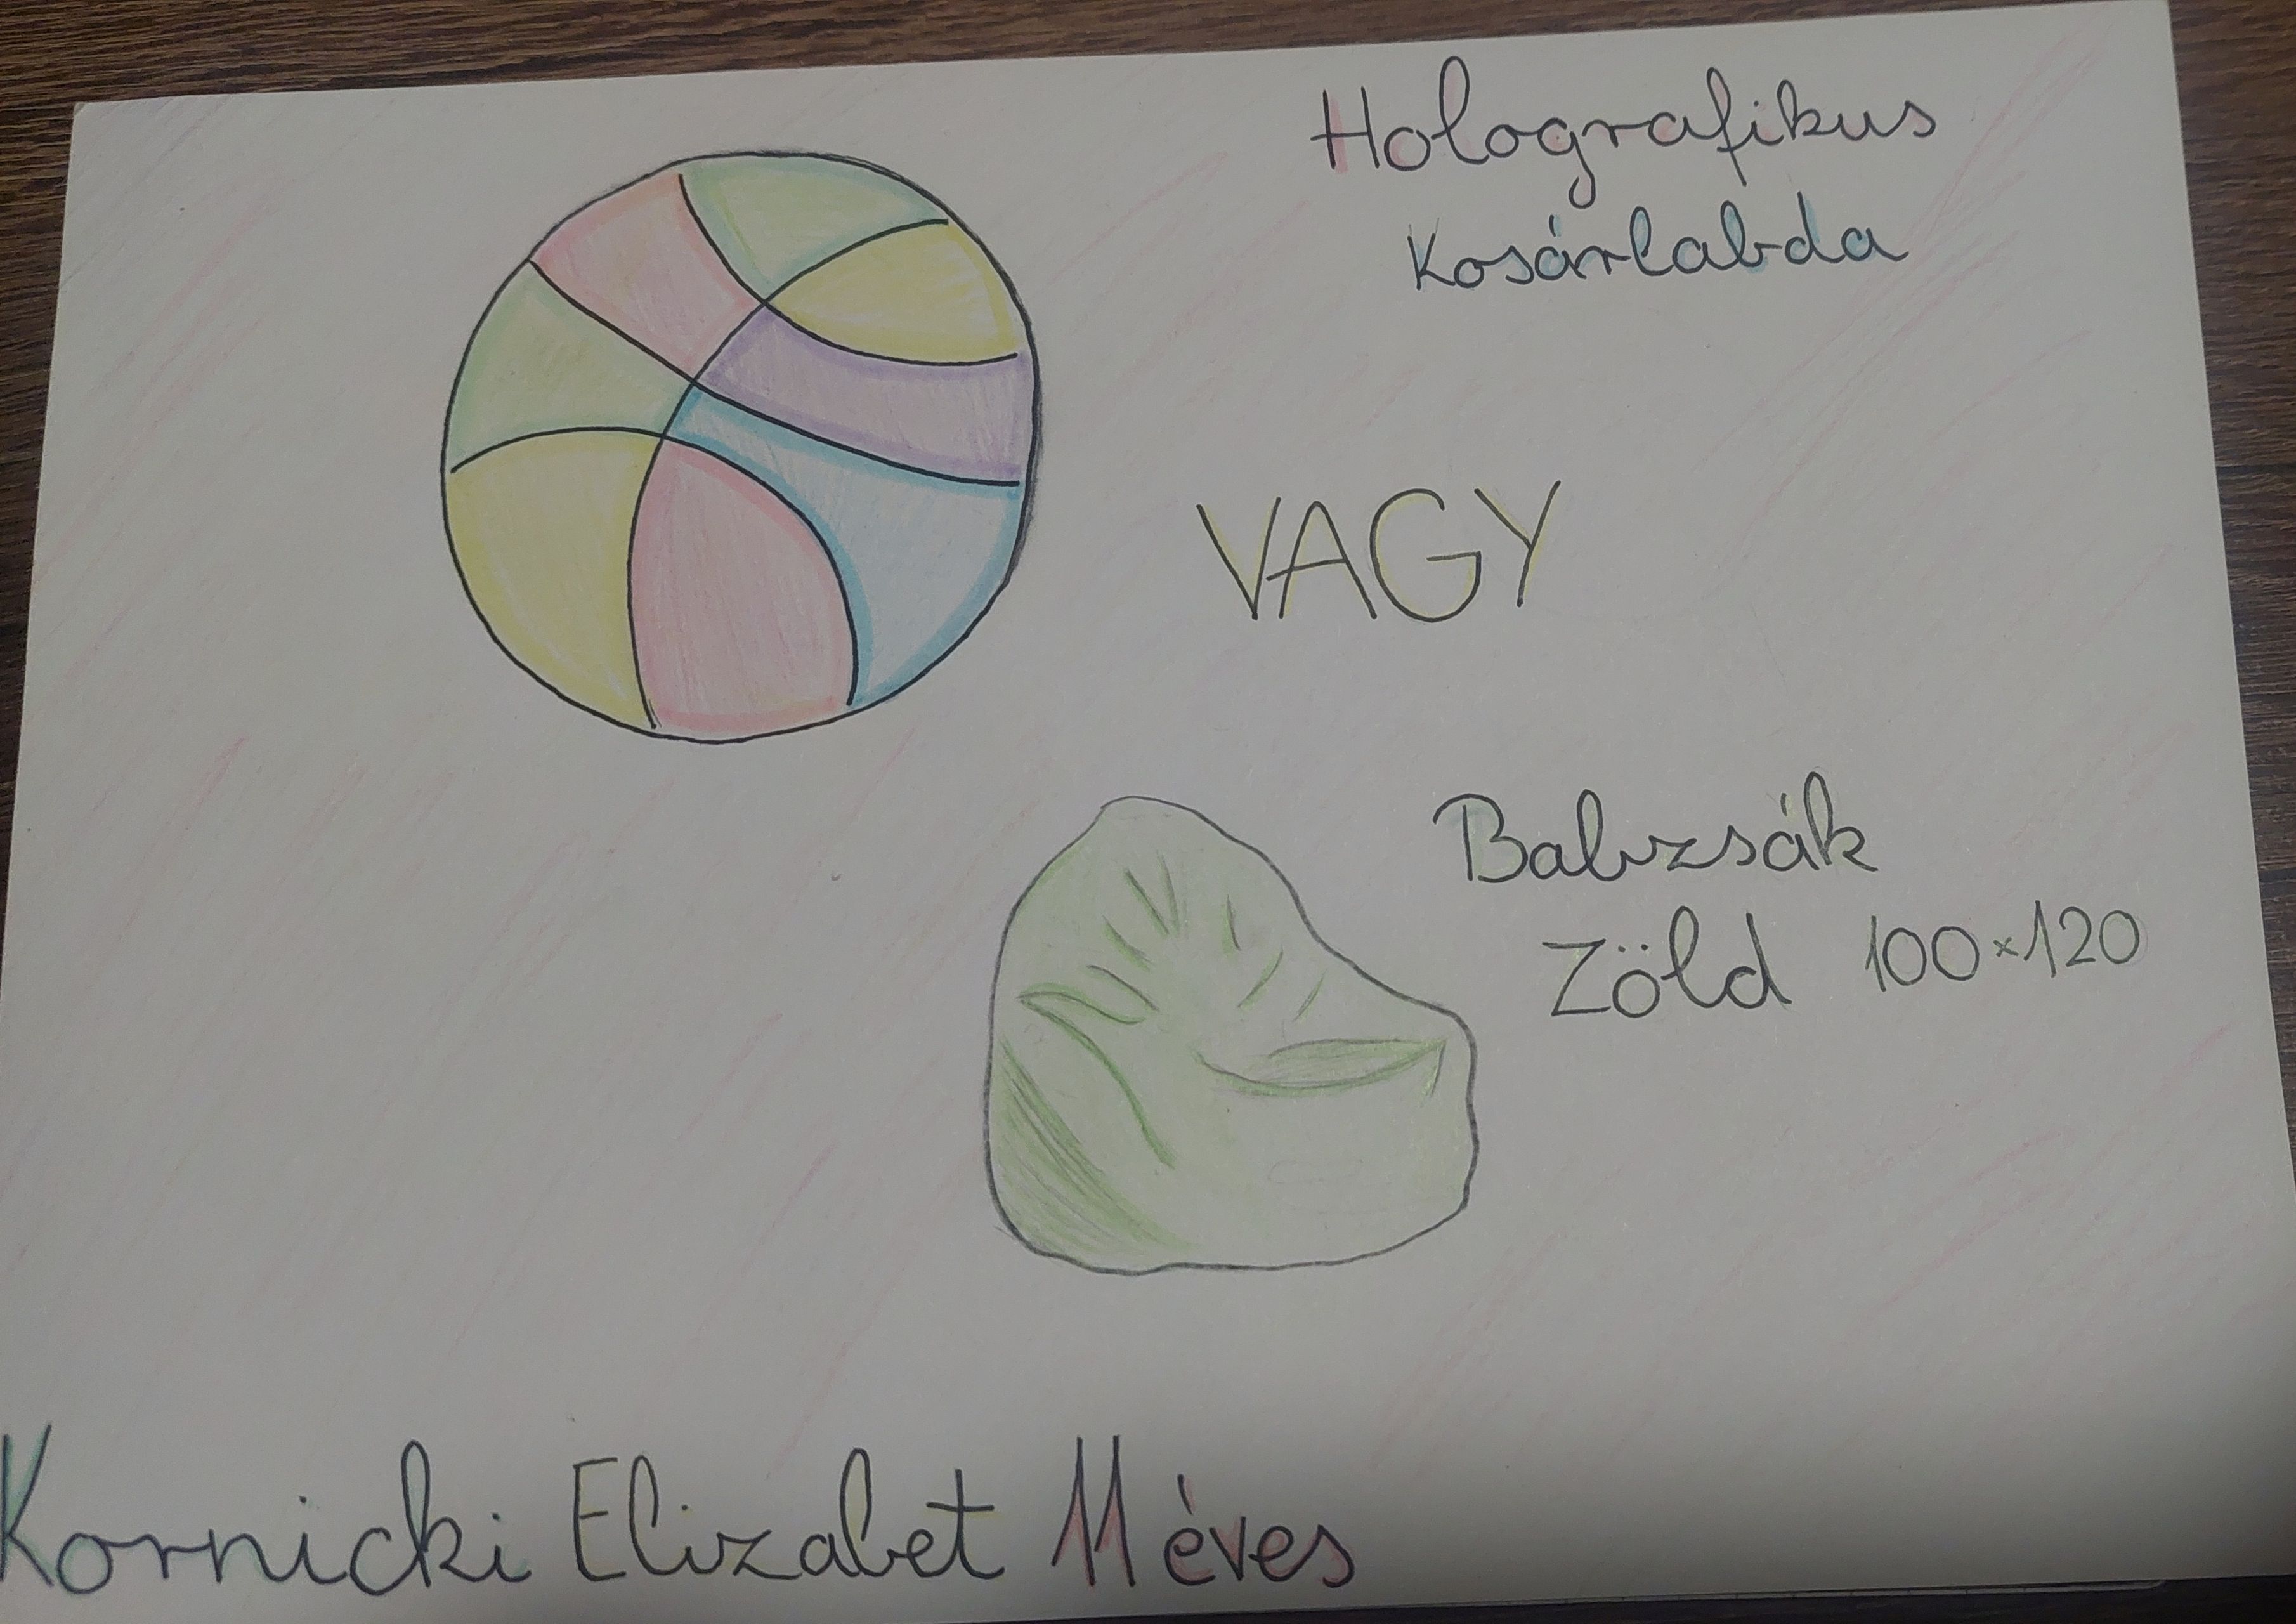 Holografikus
Kosárlabda
VAGY
Babzsák
Zöld 100×120
Kornicki Elizabet 11 éves